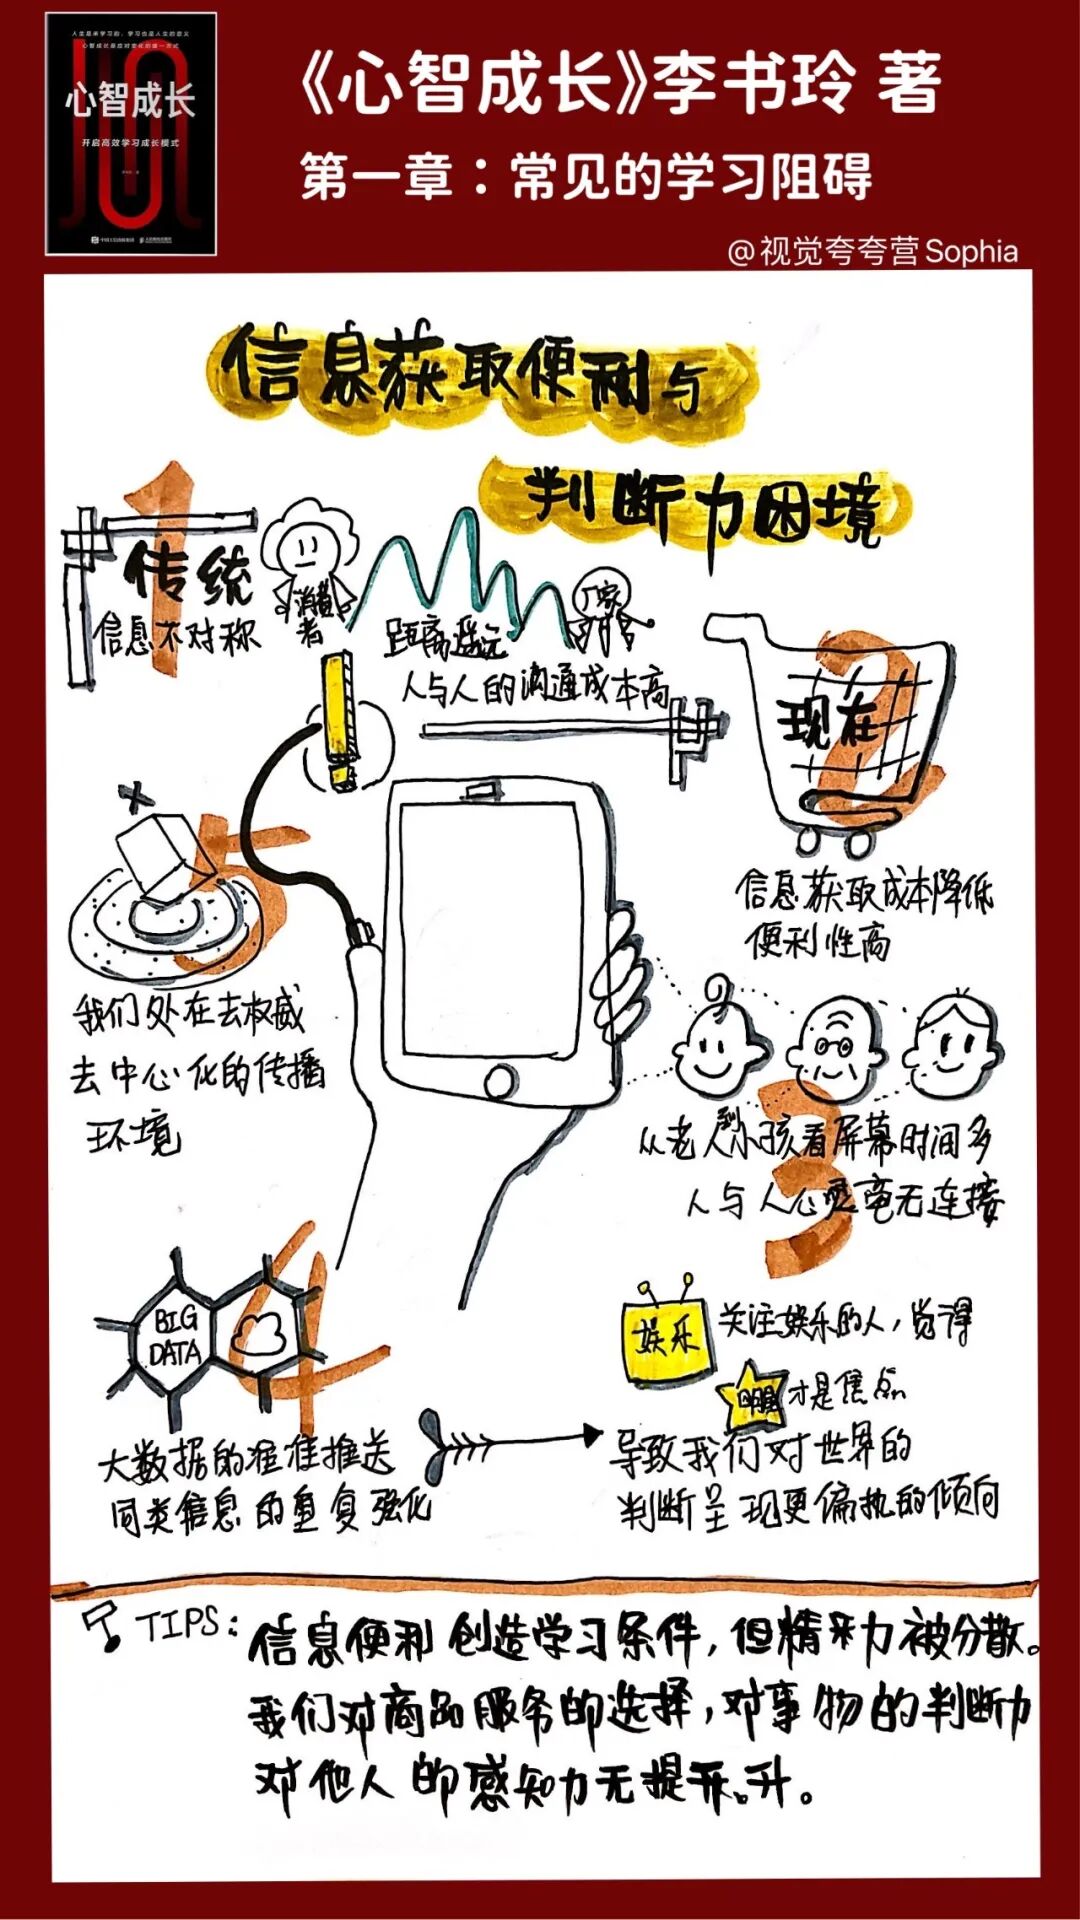 人生是来学习的，学习也是人生的意义
心智成长是应对变化的唯一方式
心智成长
开启高效学习成长模式
《心智成长》李书玲 著
第一章：常见的学习阻碍
@视觉夸夸营Sophia
信息获取便利与
判断力困境
1
传统
信息不对称
消费者
距离遥远
厂家
人与人的沟通成本高
2
现在
信息获取成本降低
便利性高
3
从老人到小孩看屏幕时间多
人与人心灵毫无连接
4
BIG
DATA
大数据的准准推送
同类信息的重复强化
娱乐
关注娱乐的人，觉得
明星才是焦点
导致我们对世界的
判断呈现更偏执的倾向
5
我们处在去权威
去中心化的传播
环境
TIPS:
信息便利创造学习条件，但精采力被分散。
我们对商品服务的选择，对事物的判断力
对他人的感知力无提升。